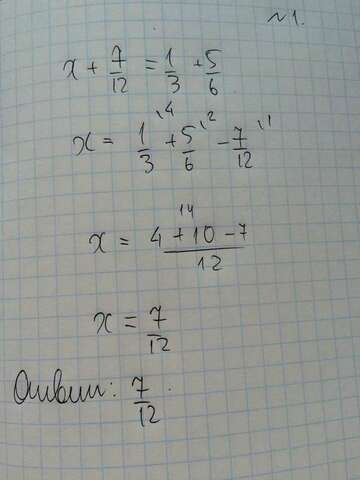 №1.
x + 7/12 = 1/3 + 5/6
x = 1/3 \4 + 5/6 \2 - 7/12 \1
14
x = 4 + 10 - 7 / 12
x = 7/12
Ответ: 7/12.